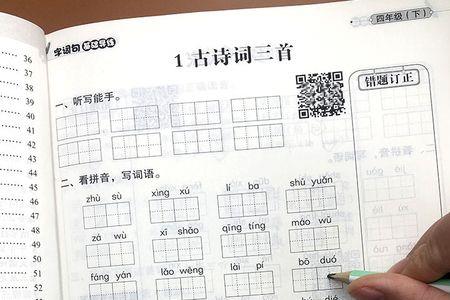 字词句 基础导练
四年级（下）
1 古诗词三首
错题订正
一、听写能手。
二、看拼音，写词语。
zhù sù xìng xú lí ba shū yuǎn
zá wù xī shǎo qīng tíng máo wū
fáng yán lǎo wēng lài pí bō duó
36
37
38
39
40
41
42
43
44
45
49
50
51
52